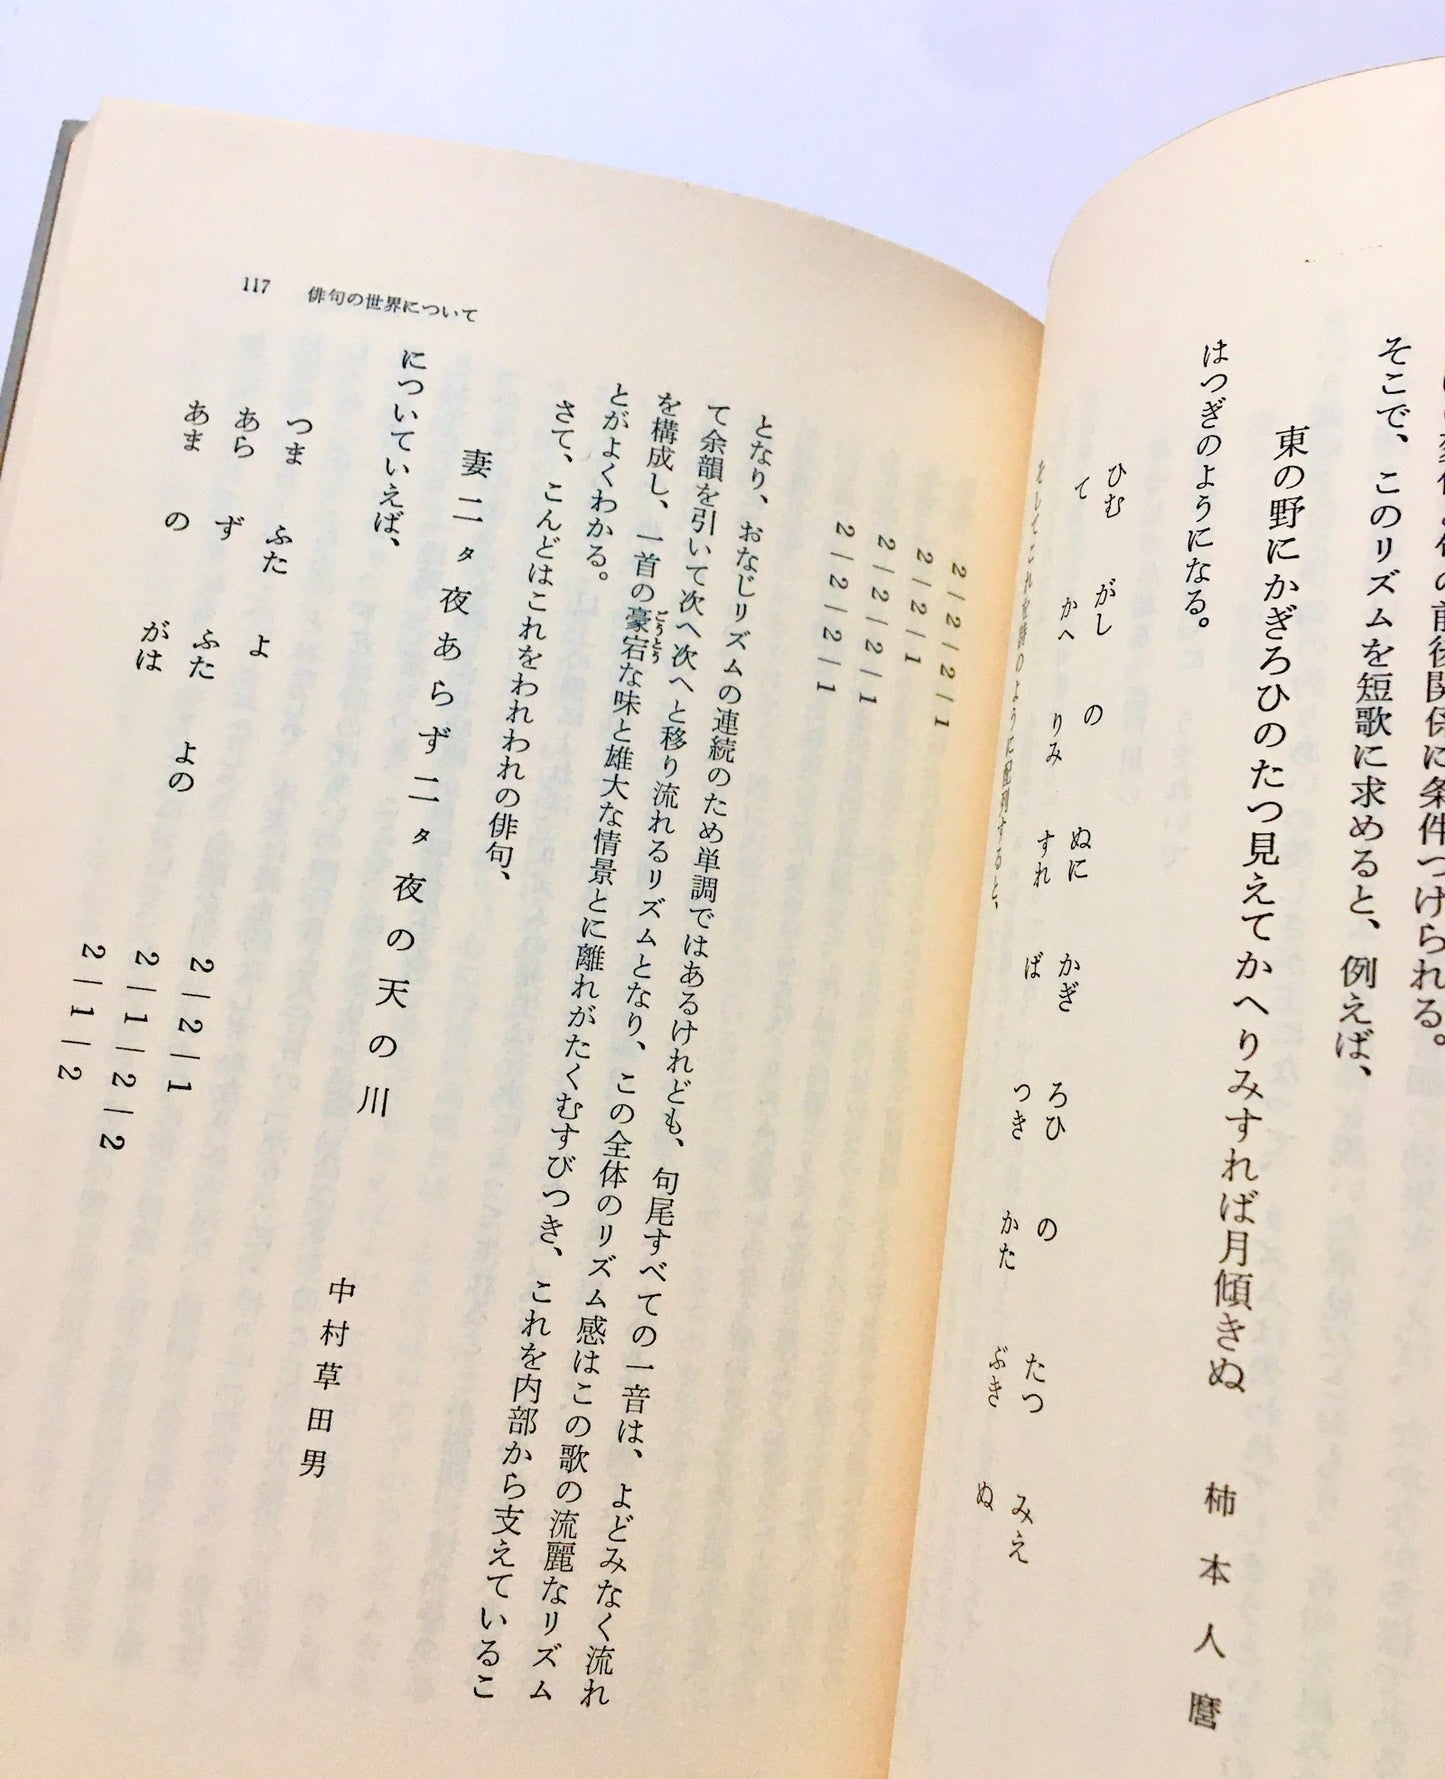 そこで、このリズムを短歌に求めると、例えば、
東の野にかぎろひのたつ見えてかへりみすれば月傾きぬ　柿本人麿
はつぎのようになる。
ひむ　がし　の　ぬに　かぎ　ろひ　の　たつ　みえ
て　かへ　りみ　すれ　ば　つき　かた　ぶき　ぬ
そしてこれを詩のように配列すると、
2―2―2―1
2―2―1
2―2―2―1
2―2―2―1
となり、おなじリズムの連続のため単調ではあるけれども、句尾すべての一音は、よどみなく流れ
て余韻を引いて次へ次へと移り流れるリズムとなり、この全体のリズム感はこの歌の流麗なリズム
を構成し、一首の豪宕な味と雄大な情景とに離れがたくむすびつき、これを内部から支えているこ
ごうとう
とがよくわかる。
さて、こんどはこれをわれわれの俳句、
妻二タ夜あらず二タ夜の天の川　中村草田男
についていえば、
つま　ふた　よ　2―2―1
あら　ず　ふた　よの　2―1―2―2
あま　の　がは　2―1―2
117　俳句の世界について